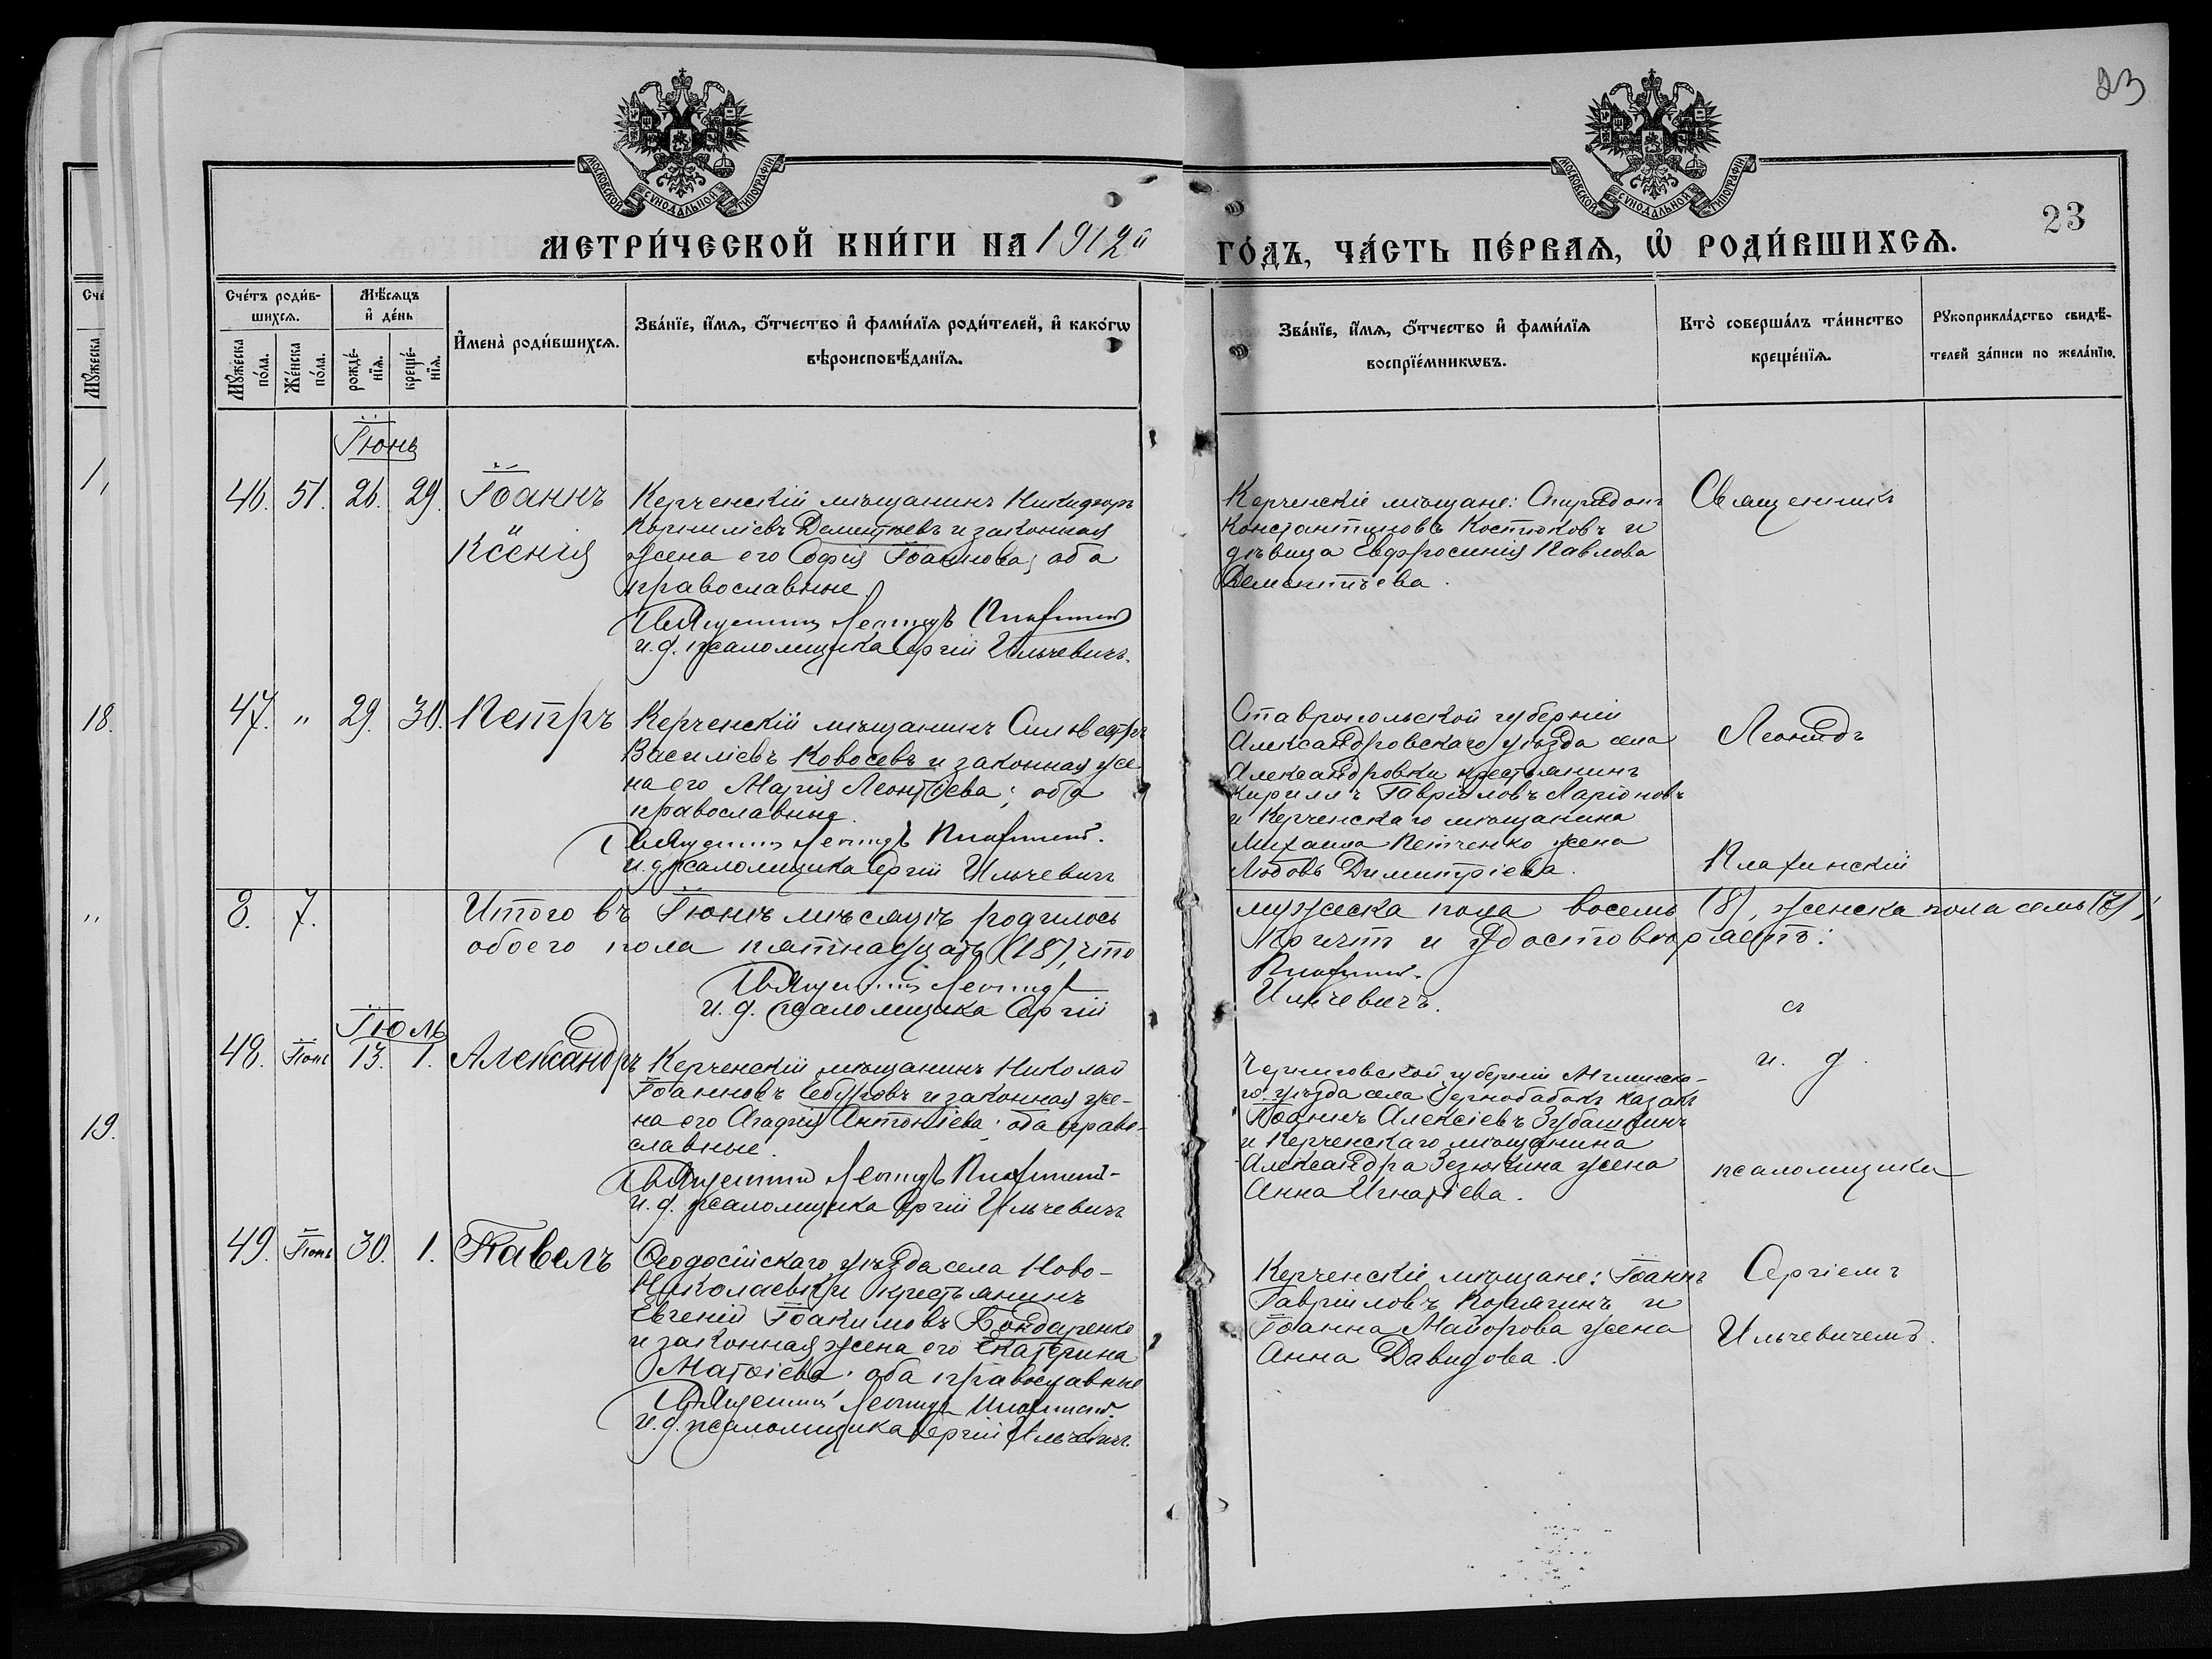 23
МОСКОВСКОЙ СУНОДАЛЬНОЙ ТИПОГРАФІИ
МОСКОВСКОЙ СУНОДАЛЬНОЙ ТИПОГРАФІИ
23
МЕТРИ́ЧЕСКОЙ КНИ́ГИ НА 1912й ГО́ДЪ, ЧА́СТЬ ПЕ́РВАѦ, Ѡ҆ РОДИ́ВШИХСѦ.
Сче́тъ роди́в-
шихсѧ.
Мꙋ́жеска по́ла.
Же́нска по́ла.
Мѣ́сѧцъ
и҆ де́нь
рожде́-
нїѧ.
креще́-
нїѧ.
И҆мена̀ роди́вшихсѧ.
Зва́нїе, и҆́мѧ, ѻ҆́тчество и҆ фами́лїѧ роди́телей, и҆ како́гѡ
вѣроисповѣ́данїѧ.
Зва́нїе, и҆́мѧ, ѻ҆́тчество и҆ фами́лїѧ
воспрїе́мникѡвъ.
Кто̀ соверша́лъ та́инство
креще́нїѧ.
Рꙋкоприкла́дство свидѣ́-
телей за́писи по жела́нїю.
Іюнь
46. 51. 26. 29. Іоаннъ
Ксенія
Керченскій мѣщанинъ Никифоръ
Корниліевъ Дементьевъ и законная
жена его Софія Іоаннова; оба
православные.
Священникъ Леонидъ Плахинскій
и. д. псаломщика Сергій Ильчевичъ.
Керченскіе мѣщане: Спиридонъ
Константиновъ Костюковъ и
дѣвица Евфросинія Павлова
Дементьева.
Священникъ
47. " 29. 30. Петръ
Керченскій мѣщанинъ Сильвестръ
Василіевъ Ковосевъ и законная же-
на его Марія Леонтіева; оба
православные.
Священникъ Леонидъ Плахинскій.
и. д. псаломщика Сергій Ильчевичъ
Ставропольской губерніи
Александровскаго уѣзда села
Александровки крестьянинъ
Кириллъ Гавріиловъ Ларіоновъ
и Керченскаго мѣщанина
Михаила Петченко жена
Любовь Димитріева.
Леонидъ
Плахинскій
8. 7. Итого въ Іюнѣ мѣсяцѣ родилось мужеска пола восемь (8), женска пола семь (7),
обоего пола пятнадцать (15), что Причтъ и удостовѣряетъ:
Священникъ Леонидъ Плахинскій.
и. д. псаломщика Сергій Ильчевичъ.
Іюль
48. Іюнь 13. 1. Александръ
Керченскій мѣщанинъ Николай
Іоанновъ Чебуровъ и законная же-
на его Агафія Антоніева; оба право-
славные.
Священникъ Леонидъ Плахинскій
и. д. псаломщика Сергій Ильчевичъ
Черниговской губерніи Мглинска-
го уѣзда села казакъ
Іоаннъ Алексіевъ
и Керченскаго мѣщанина
Александра Зезюкина жена
Анна Игнатіева.
съ
и. д.
псаломщика
49. Іюнь 30. 1. Павелъ
Ѳеодосійскаго уѣзда села Ново-
Николаевки крестьянинъ
Евгеній Іоакимовъ Бондаренко
и законная жена его Екатерина
Матѳіева; оба православные
Священникъ Леонидъ Плахинскій.
и. д. псаломщика Сергій Ильчевичъ.
Керченскіе мѣщане: Іоаннъ
Гавріиловъ Корягинъ и
Іоанна Майорова жена
Анна Давидова.
Сергіемъ
Ильчевичемъ.
Сче
Мꙋ́жеска
1,
18.
"
19.